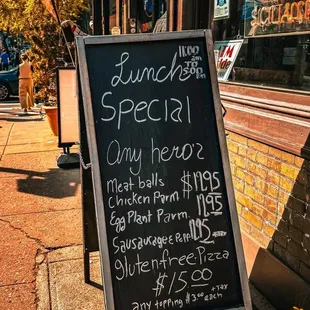 Lunch
11:00 am
TO
3:00 pm
Special
Any heroz
Meat balls
Chicken Parm $11.95
Egg Plant Parm 11.95
Sausaucage & Pepp. 11.95
gluten free Pizza
$15.00
any topping $3.00 each
+ TAX